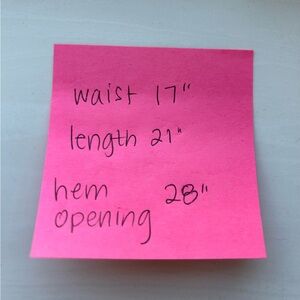 waist 17"
length 21"
hem 28"
opening